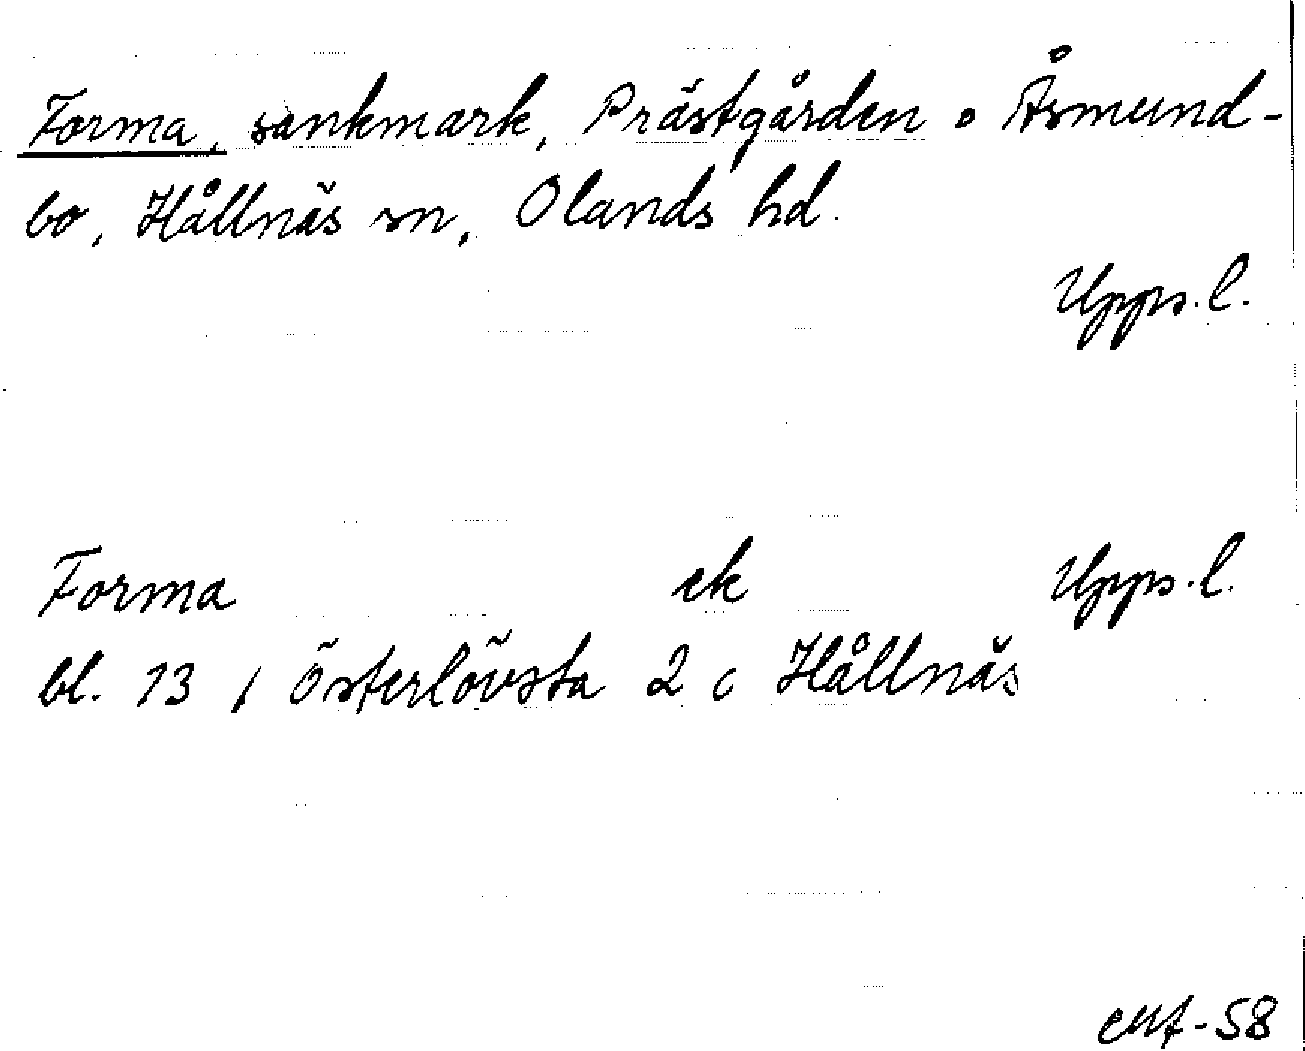 Forma, sankmark, Prästgården o Åsmund-
bo, Hållnäs sn, Olands hd.
Upps. l.
Forma ek Upps. l.
bl. 13 f Österlövsta 2 c Hållnäs
-58